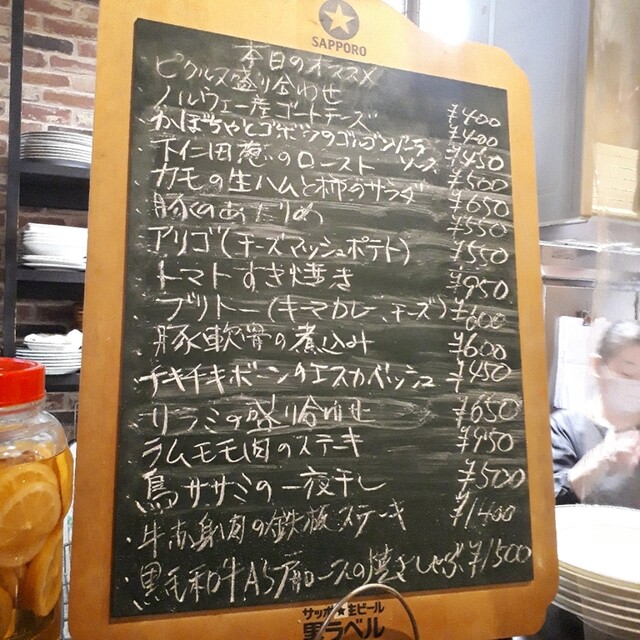 SAPPORO
本日のオススメ
・ピクルス盛り合わせ ¥400
・ノルウェー産ゴートチーズ ¥400
・かぼちゃとゴボウのゴルゴンゾーラソース ¥450
・下仁田葱のロースト ¥500
・カモの生ハムと柿のサラダ ¥650
・豚のあたりめ ¥550
・アリゴ(チーズマッシュポテト) ¥550
・トマトすき焼き ¥950
・ブリトー(キマカレー、チーズ) ¥600
・豚軟骨の煮込み ¥600
・チキチキボーンのエスカベッシュ ¥450
・サラミの盛り合わせ ¥650
・ラムモモ肉のステキ ¥950
・鳥ササミの一夜干し ¥500
・牛赤身肉の鉄板ステーキ ¥1400
・黒毛和牛A5の焼きしゃぶ ¥1500
サッポロ★生ビール
黒ラベル